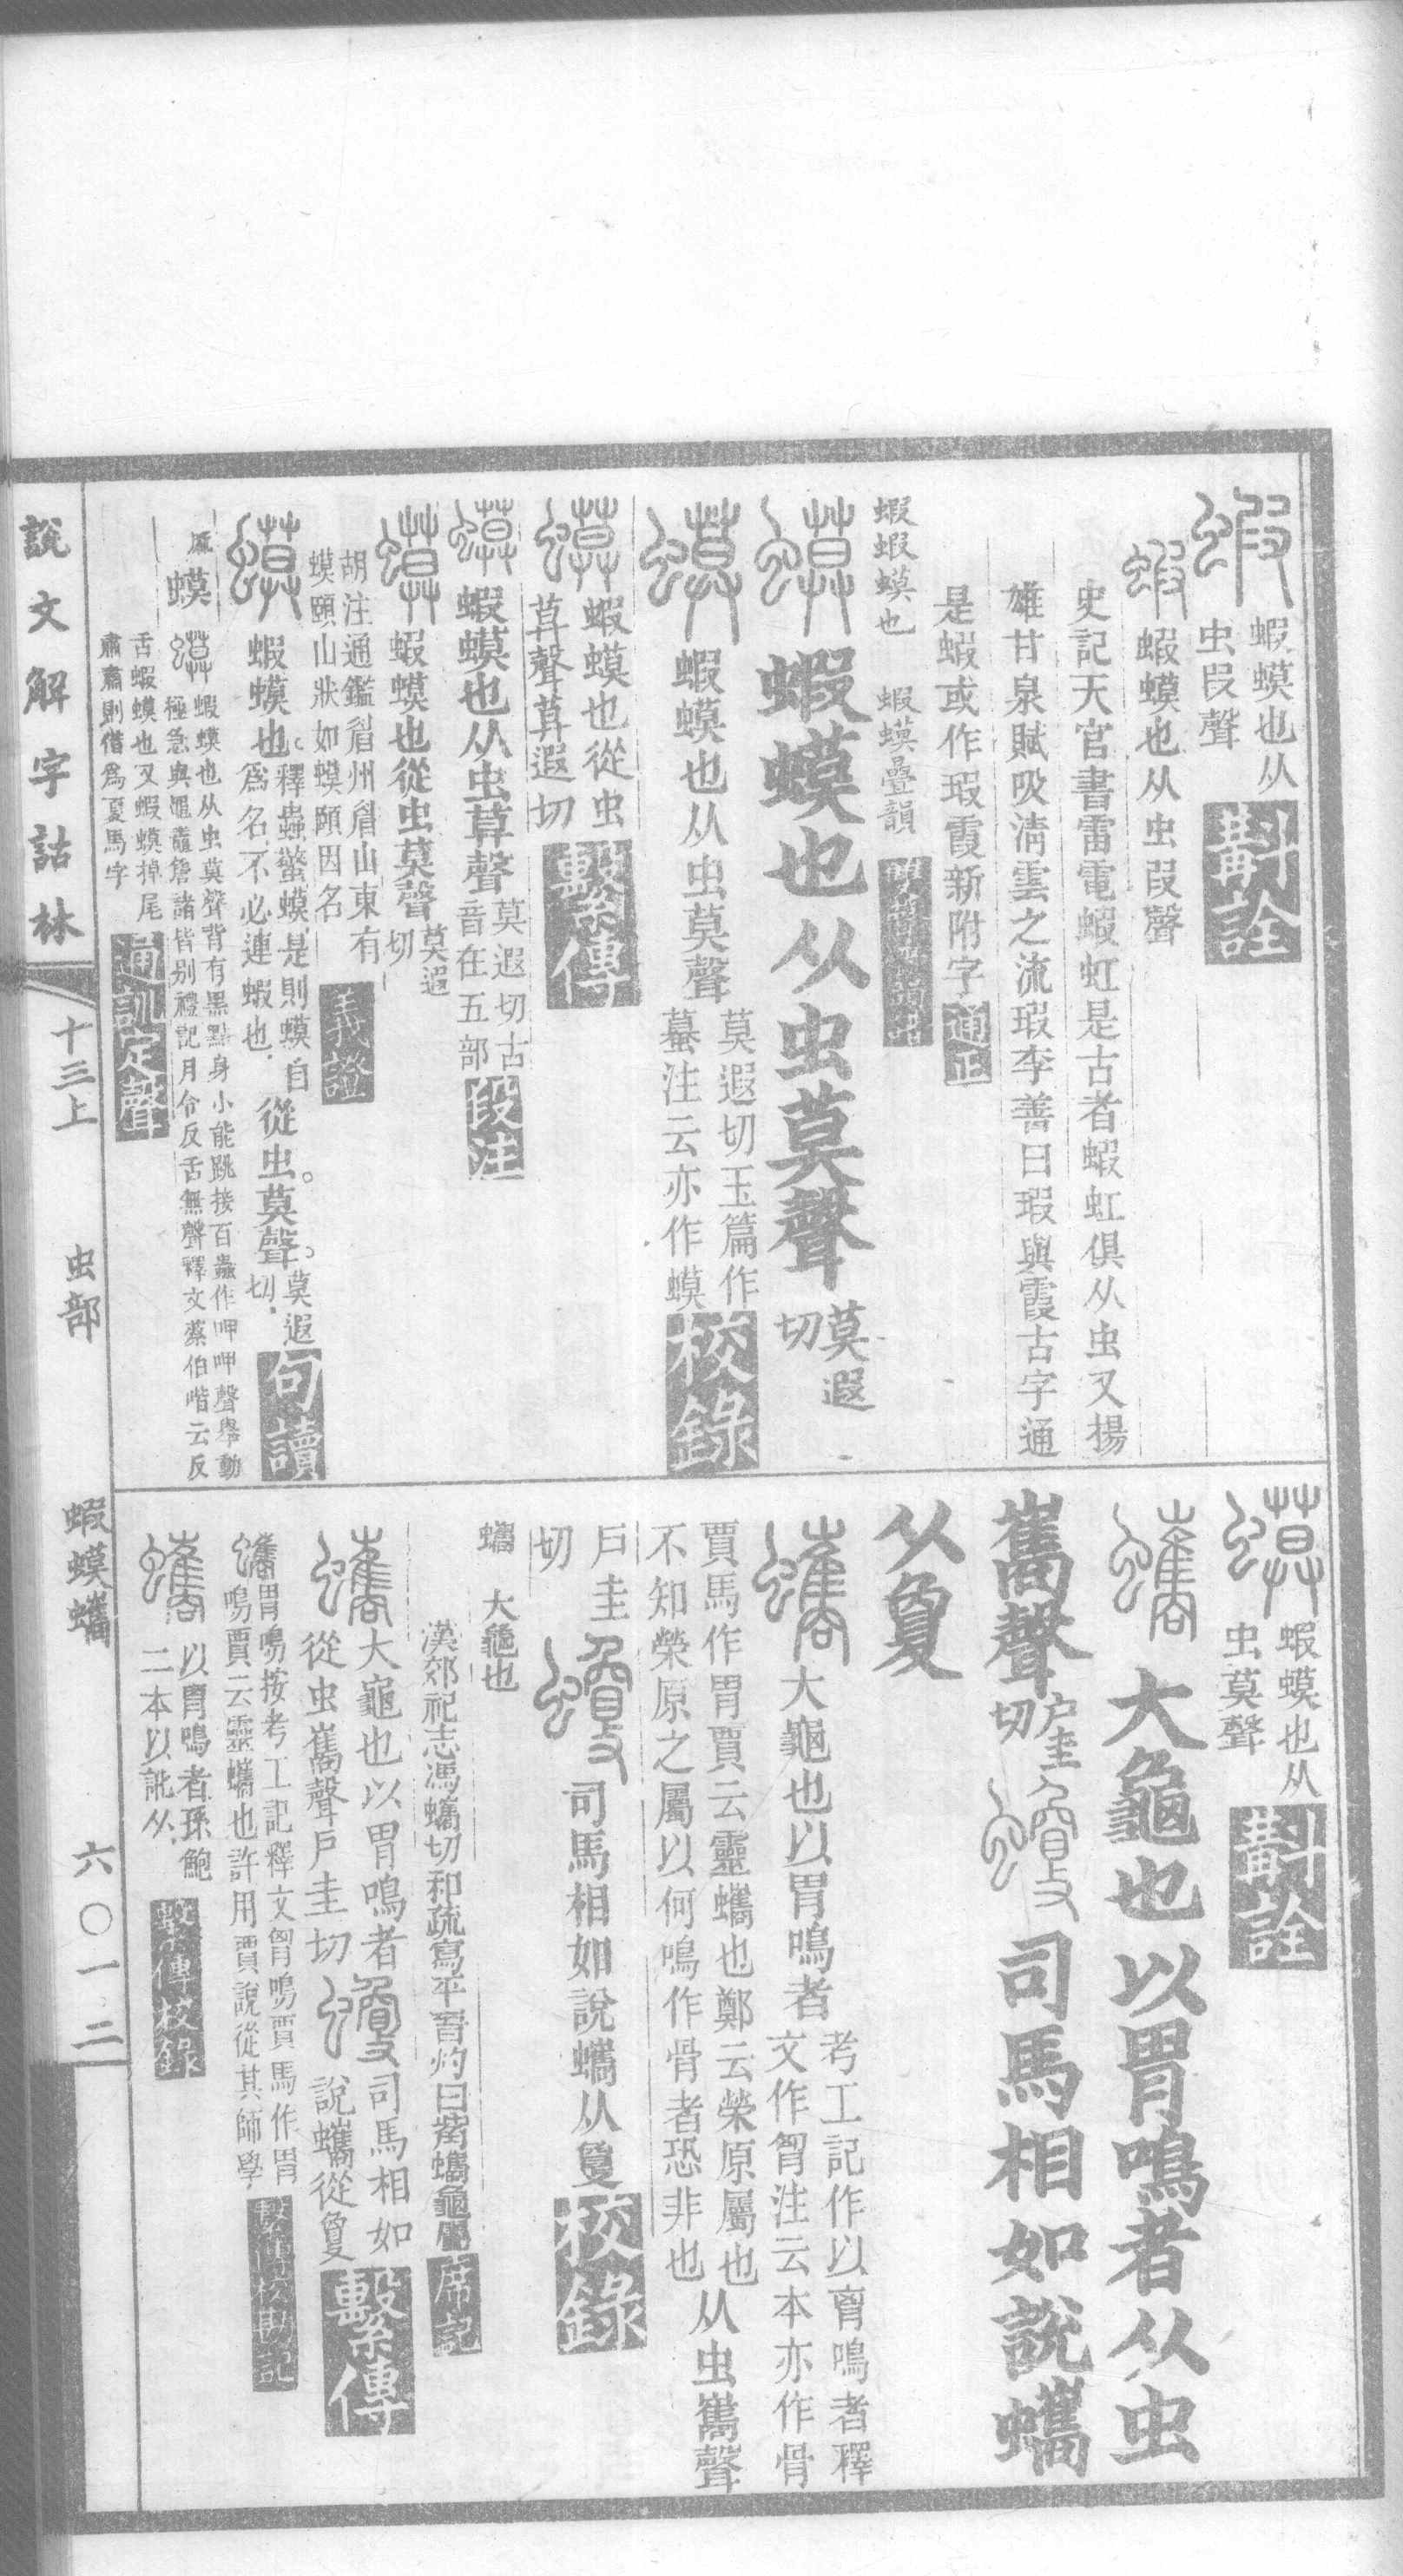 蝦蟆也从
虫叚聲
斠詮
蝦蟆也从虫叚聲
史記天官書雷電蝦虹是古者蝦虹俱从虫又揚
雄甘泉賦吸淸雲之流瑕李善曰瑕與霞古字通
是蝦或作瑕霞新附字
通正
蝦蝦蟆也
蝦蟆疊韻
蝦蟆也从虫莫聲
莫遐
切
蝦蟆也从虫莫聲
莫遐切玉篇作
蟇注云亦作蟆
校錄
蝦蟆也從虫
莫聲莫遐切
繫傳
蝦蟆也从虫莫聲
莫遐切古
音在五部
段注
蝦蟆也從虫莫聲
莫遐
切
胡注通鑑眉州眉山東有
蟆頤山狀如蟆頤因名
義證
蝦蟆也
釋蟲蟼蟆是則蟆自
爲名不必連蝦也
從虫莫聲
莫遐
切
句讀
蟆
蝦蟆也从虫莫聲背有黑點身小能跳接百蟲作呷呷聲舉動
極急與黽鼀詹諸皆別禮記月令反舌無聲釋文蔡伯喈云反
舌蝦蟆也又蝦蟆掉尾
肅肅則借爲夏馬字
通訓定聲
蝦蟆也从
虫莫聲
斠詮
大龜也以胃鳴者从虫
巂聲
户圭
切
司馬相如說蠵
从敻
大龜也以胃鳴者
考工記作以胷鳴者釋
文作胷注云本亦作骨
賈馬作胃賈云靈蠵也鄭云榮原屬也
不知榮原之屬以何鳴作骨者恐非也
从虫巂聲
戶圭
切
司馬相如說蠵从敻
校錄
蠵
大龜也
漢郊祀志馮蠵切和疏寫平晉灼曰蠵龜屬
席記
大龜也以胃鳴者
從虫巂聲戶圭切
司馬相如
說蠵從敻
繫傳
胃鳴按考工記釋文胷鳴賈馬作胃
鳴賈云靈蠵也許用賈說從其師學
繫傳校勘記
以胃鳴者孫鮑
二本以訛从
繫傳校錄
說文解字詁林
十三上
虫部
蝦蟆蠵
六〇一二